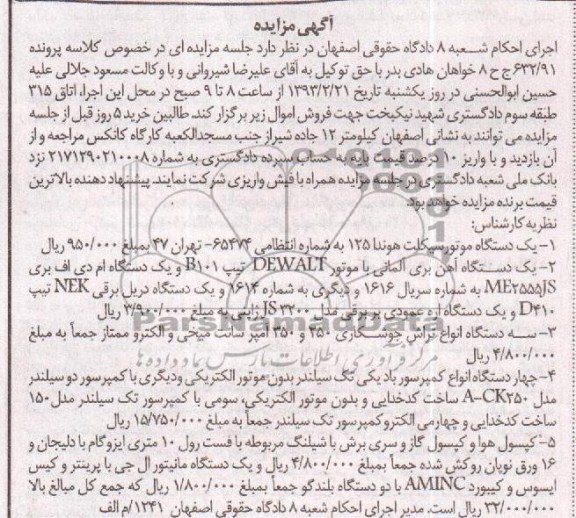 آگهی مزایده
اجرای احکام شعبه ۸ دادگاه حقوقی اصفهان در نظر دارد جلسه مزایده ای در خصوص کلاسه پرونده
۶۳۲/۹۱ ج ح ۸ خواهان هادی بدر با حق توکیل به آقای علیرضا شیروانی و با وکالت مسعود جلالی علیه
حسین ابوالحسنی در روز یکشنبه تاریخ ۱۳۹۳/۲/۲۱ از ساعت ۸ تا ۹ صبح در محل این اجرا، اتاق ۳۱۵
طبقه سوم دادگستری شهید نیکبخت جهت فروش اموال زیر برگزار کند. طالبین خرید ۵ روز قبل از جلسه
مزایده می توانند به نشانی اصفهان کیلومتر ۱۲ جاده شیراز جنب مسجدالکعبه کارگاه کانکس مراجعه و از
آن بازدید و با واریز ۱۰ درصد قیمت پایه به حساب سپرده دادگستری به شماره ۲۱۷۱۲۹۰۲۱۰۰۰۸ نزد
بانک ملی شعبه دادگستری در جلسه مزایده همراه با فیش واریزی شرکت نمایند. پیشنهاد دهنده بالاترین
قیمت برنده مزایده خواهد بود.
نظریه کارشناس:
۱- یک دستگاه موتورسیکلت هوندا ۱۲۵ به شماره انتظامی ۶۵۴۷۴- تهران ۴۷ بمبلغ ۹۵۰/۰۰۰ ریال
۲- یک دستگاه آهن بری آلمانی با موتور DEWALT تیپ B۱۰۱ و یک دستگاه ام دی اف بری
ME۲۵۵۵JS به شماره سریال ۱۶۱۶ و دیگری به شماره ۱۶۱۴ و یک دستگاه دریل برقی NEK تیپ
D۴۱۰ و یک دستگاه اره عمودی بر برقی مدل JS۳۲۰۰ ژاپنی به مبلغ ۲/۹۰۰/۰۰۰ ریال
۳- سه دستگاه انواع ترانس جوشکاری ۲۵۰ و ۲۵۰ آمپر سانت میخی و الکترو ممتاز جمعاً به مبلغ
۴/۸۰۰/۰۰۰ ریال
۴- چهار دستگاه انواع کمپرسور باد یکی تک سیلندر بدون موتور الکتریکی ودیگری با کمپرسور دو سیلندر
مدل A-CK۲۵۰ ساخت کدخدایی و بدون موتور الکتریکی، سومی با کمپرسور تک سیلندر مدل ۱۵۰
ساخت کدخدایی و چهارمی الکتروکمپرسور تک سیلندر جمعاً به مبلغ ۱۵/۷۵۰/۰۰۰ ریال
۵- کپسول هوا و کپسول گاز و سری برش با شیلنگ مربوطه با فست رول ۱۰ متری ایزوگام با دلیجان و
۱۶ ورق نوپان روکش شده جمعاً بمبلغ ۴/۸۰۰/۰۰۰ ریال و یک دستگاه مانیتور ال جی با پرینتر و کیس
ایسوس و کیبورد AMINC با دو دستگاه بلندگو جمعاً بمبلغ ۱/۸۰۰/۰۰۰ ریال که جمع کل مبالغ بالا
۳۲/۰۰۰/۰۰۰ ریال است. مدیر اجرای احکام شعبه ۸ دادگاه حقوقی اصفهان ۱۲۴۱/م الف
ParsNamadData
مرکز فرآوری اطلاعات پارس نماد داده ها